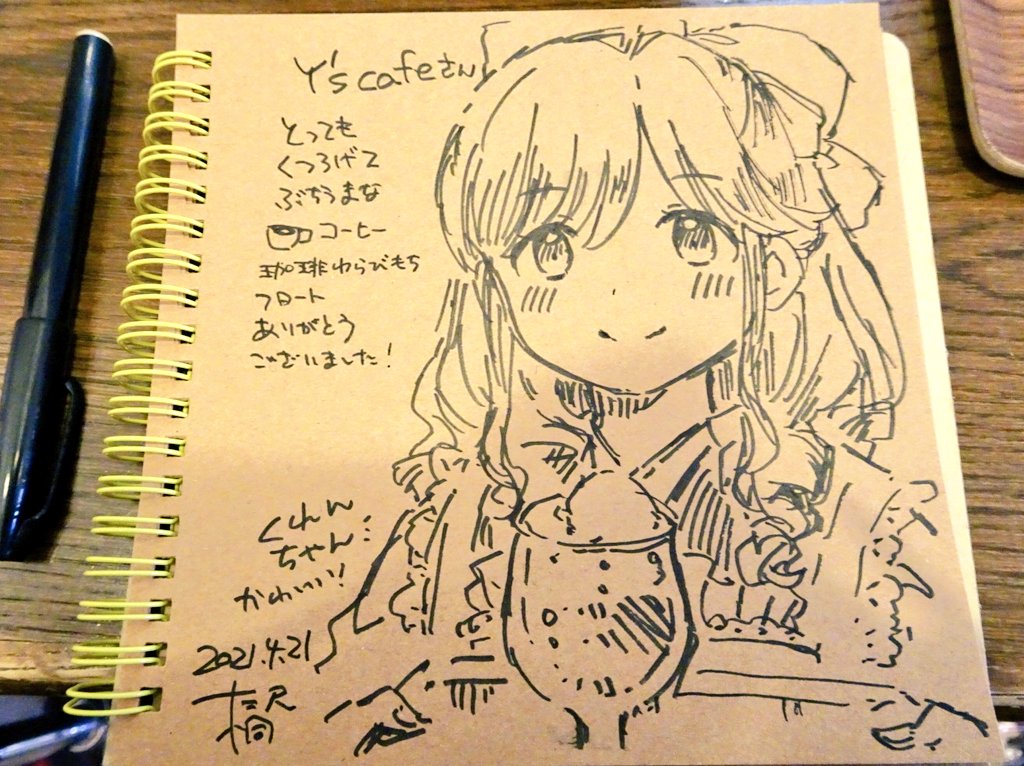 Y's cafeさん
とっても
くつろげて
ぶちうまな
コーヒー
珈琲わらびもち
フロート
ありがとう
ございました!
くれん
ちゃん:
かわいい!
2021.4.21